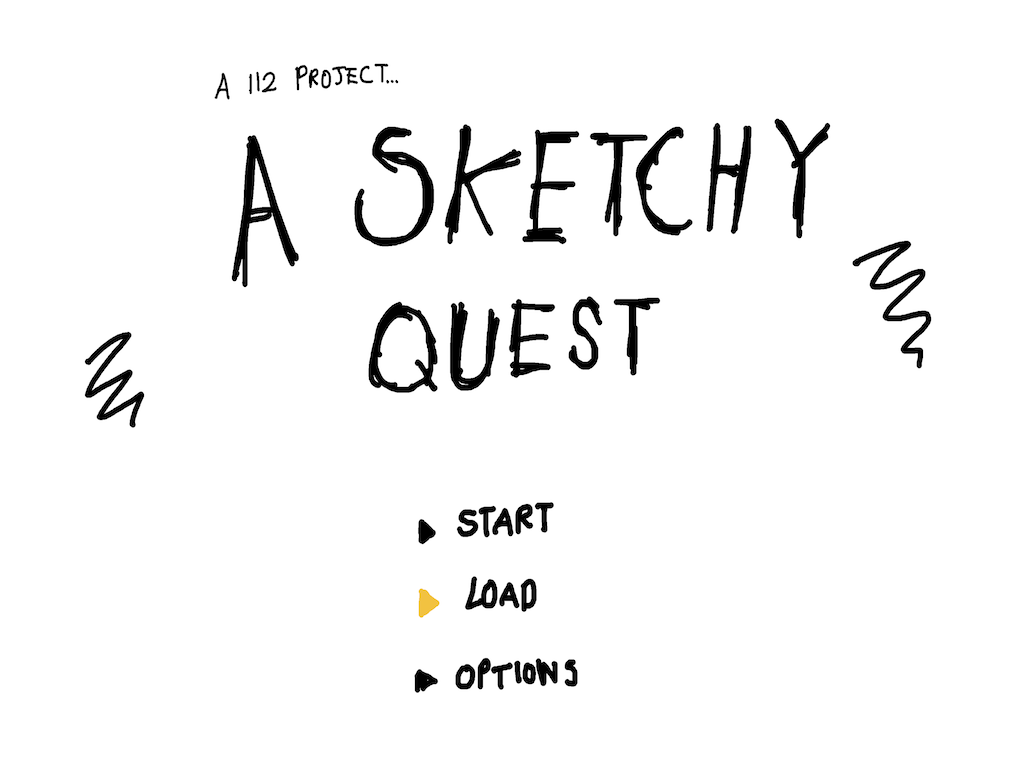 A 112 PROJECT...
A SKETCHY
QUEST
START
LOAD
OPTIONS